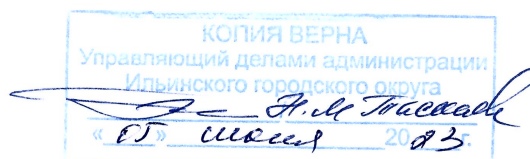 КОПИЯ ВЕРНА
Управляющий делами администрации
Ильинского городского округа
Н.М
« 05 » июня 2023 г.